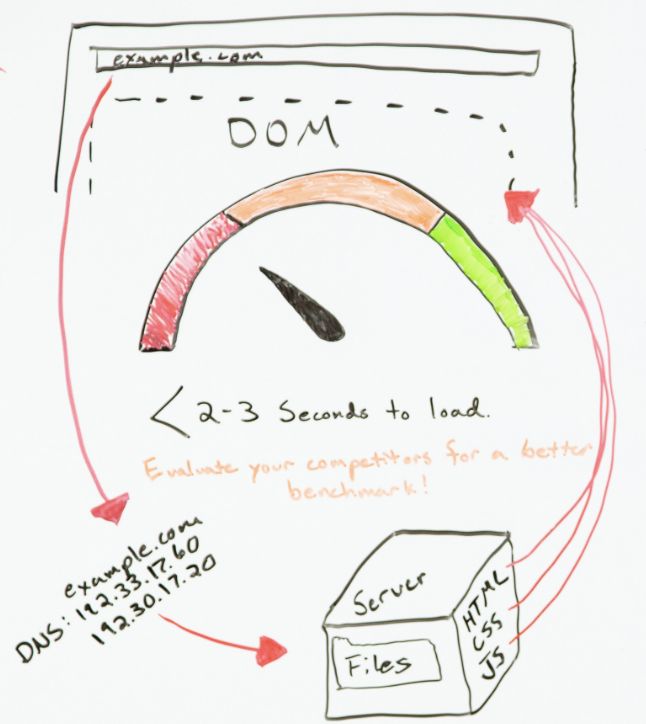 example.com
DOM
< 2-3 Seconds to load.
Evaluate your competitors for a better
benchmark!
example.com
DNS: 192.33.17.60
192.30.17.20
Server
Files
HTML
CSS
JS